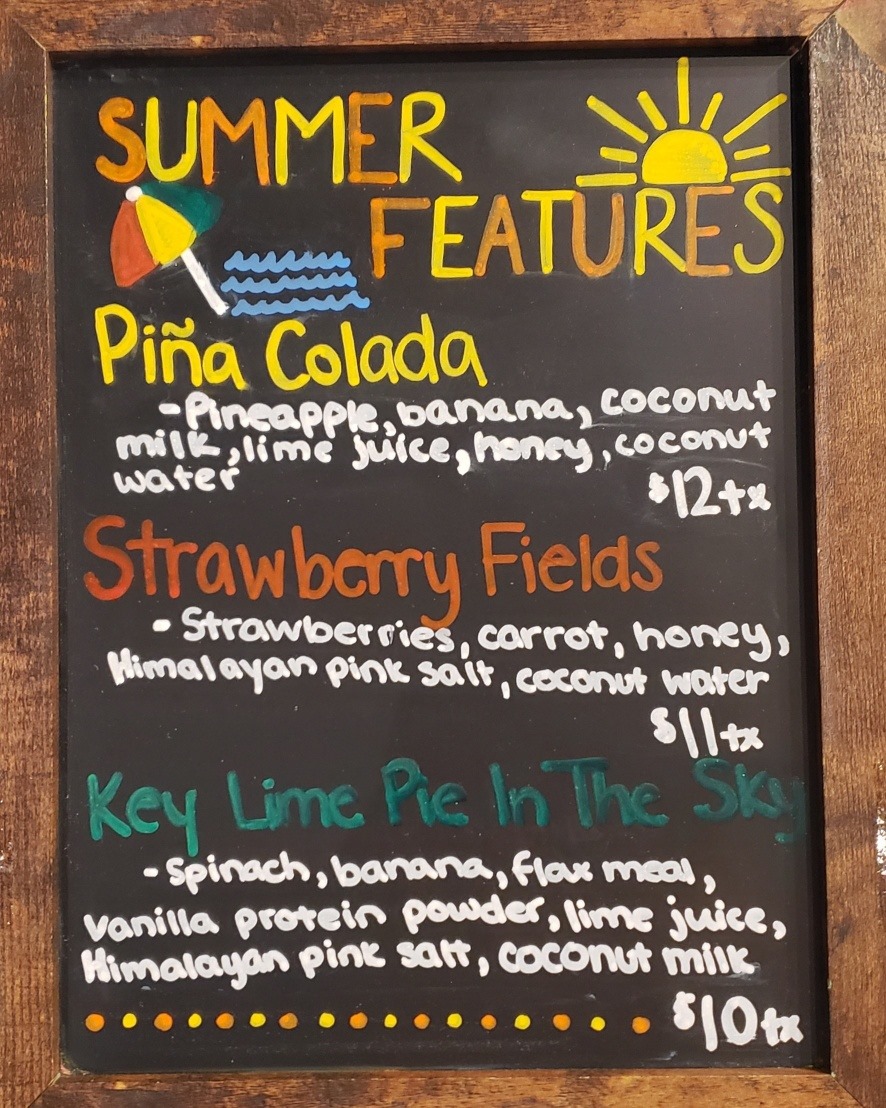 SUMMER
FEATURES
Piña Colada
-Pineapple, banana, coconut
milk, lime juice, honey, coconut
water
$12+tx
Strawberry Fields
- Strawberries, carrot, honey,
Himalayan pink salt, coconut water
$11+tx
Key Lime Pie In The Sky
-Spinach, banana, flax meal,
vanilla protein powder, lime juice,
Himalayan pink salt, coconut milk
$10+tx